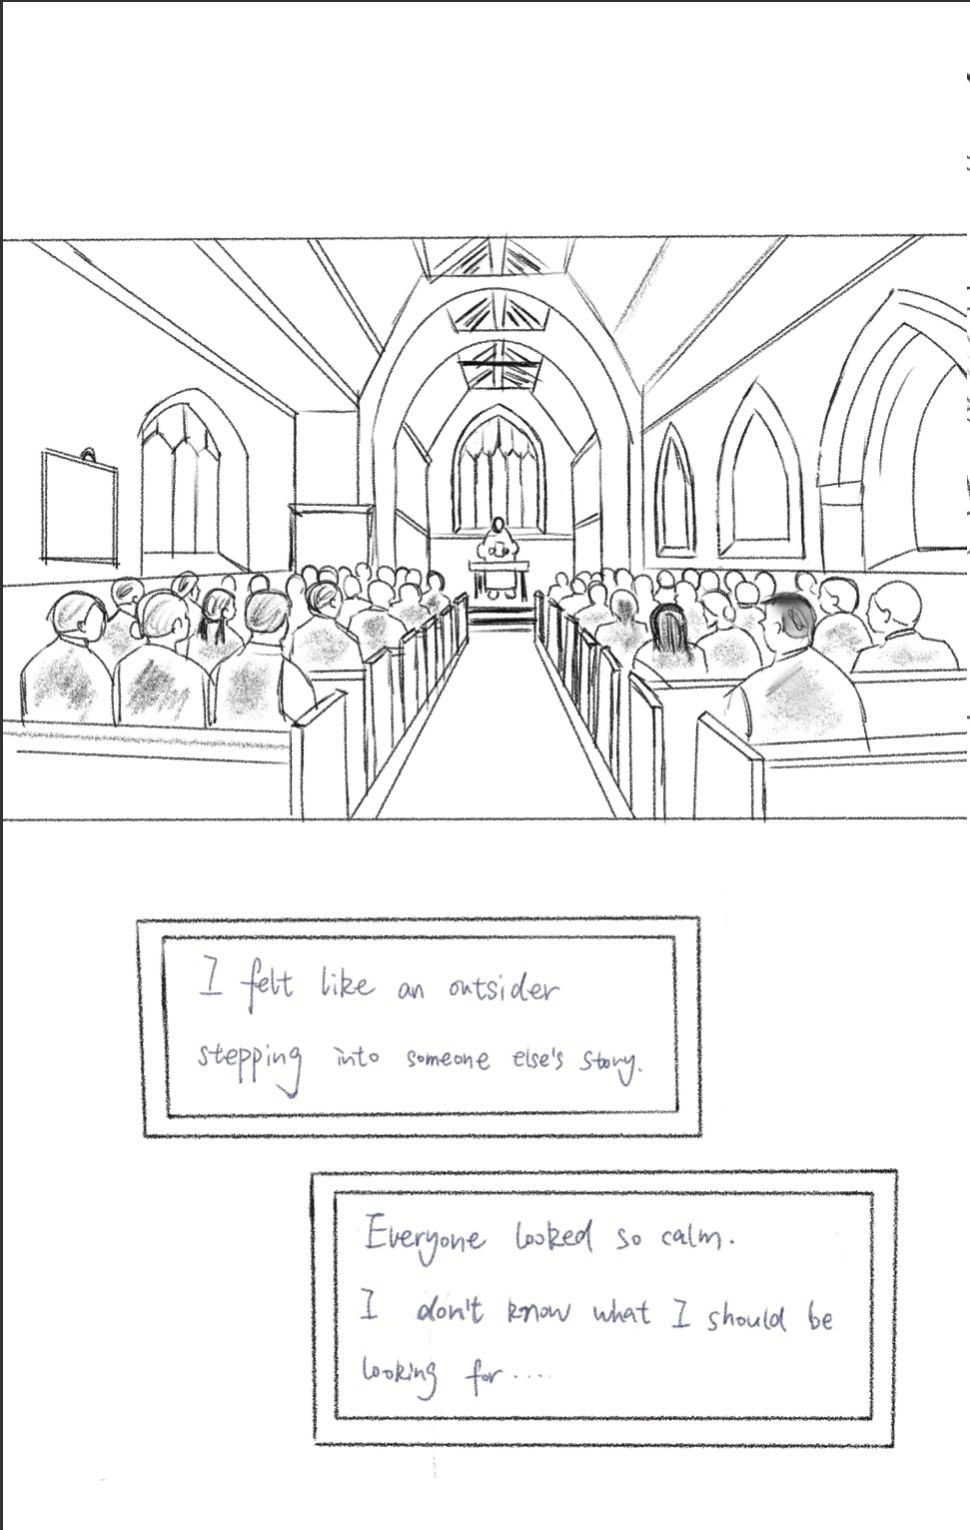 I felt like an outsider
stepping into someone else's story.
Everyone looked so calm.
I don't know what I should be
looking for....